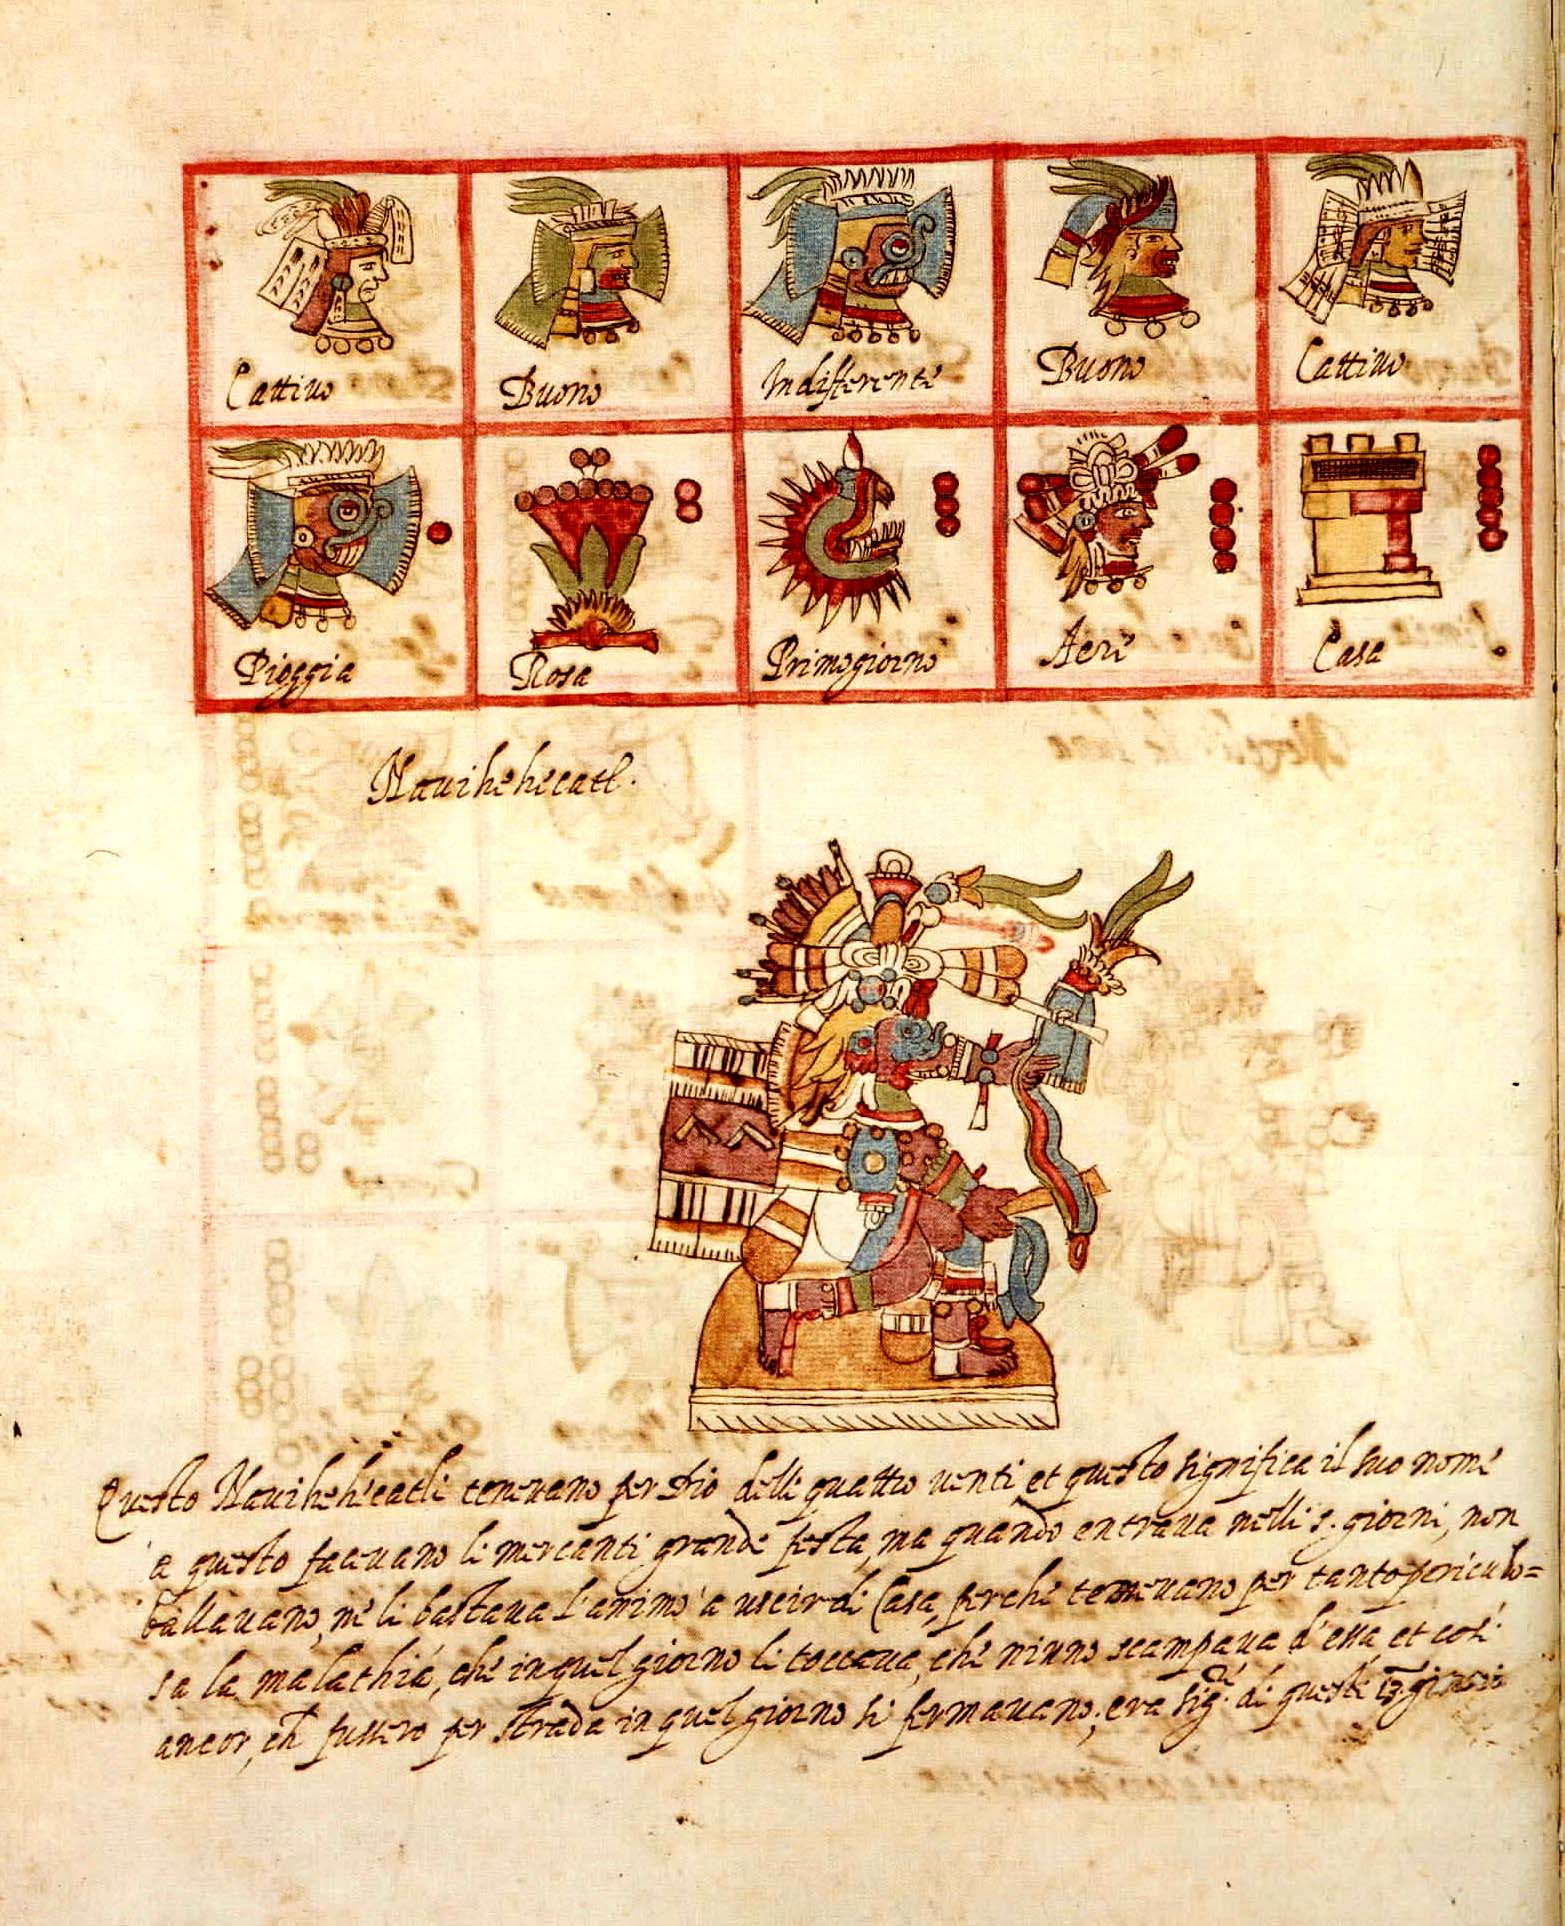 Cattiuo Buono Indifferente Buono Cattiuo
Pioggia Rosa Primogiorno Aere Casa
Nauihehecatl.
Questo Nauihehecatli teneuano per Dio delli quattro uenti et questo significa il suo nome
a questo faceuano li mercanti grande festa, ma quando entraua nelli 5. giorni, non
ballauano, ne li bastaua l'animo a uscir di Casa, perche temeuano per tanto periculo=
sa la malathia, che in quel giorno li toccaua, che niuno scampaua d'essa, et cosi
ancor, ch fussero per strada in quel giorno si fermauano; era sig.re di questi 13. giorni